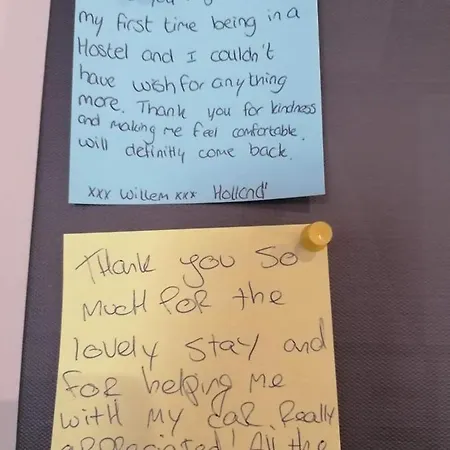 my first time being in a
Hostel and I couldn't
have wish for anything
more. Thank you for kindness
and making me feel comfortable.
will definitly come back.
xxx Willem xxx Holland'
Thank you so
much for the
lovely stay and
for helping me
with my car. Really
appreciated! All the